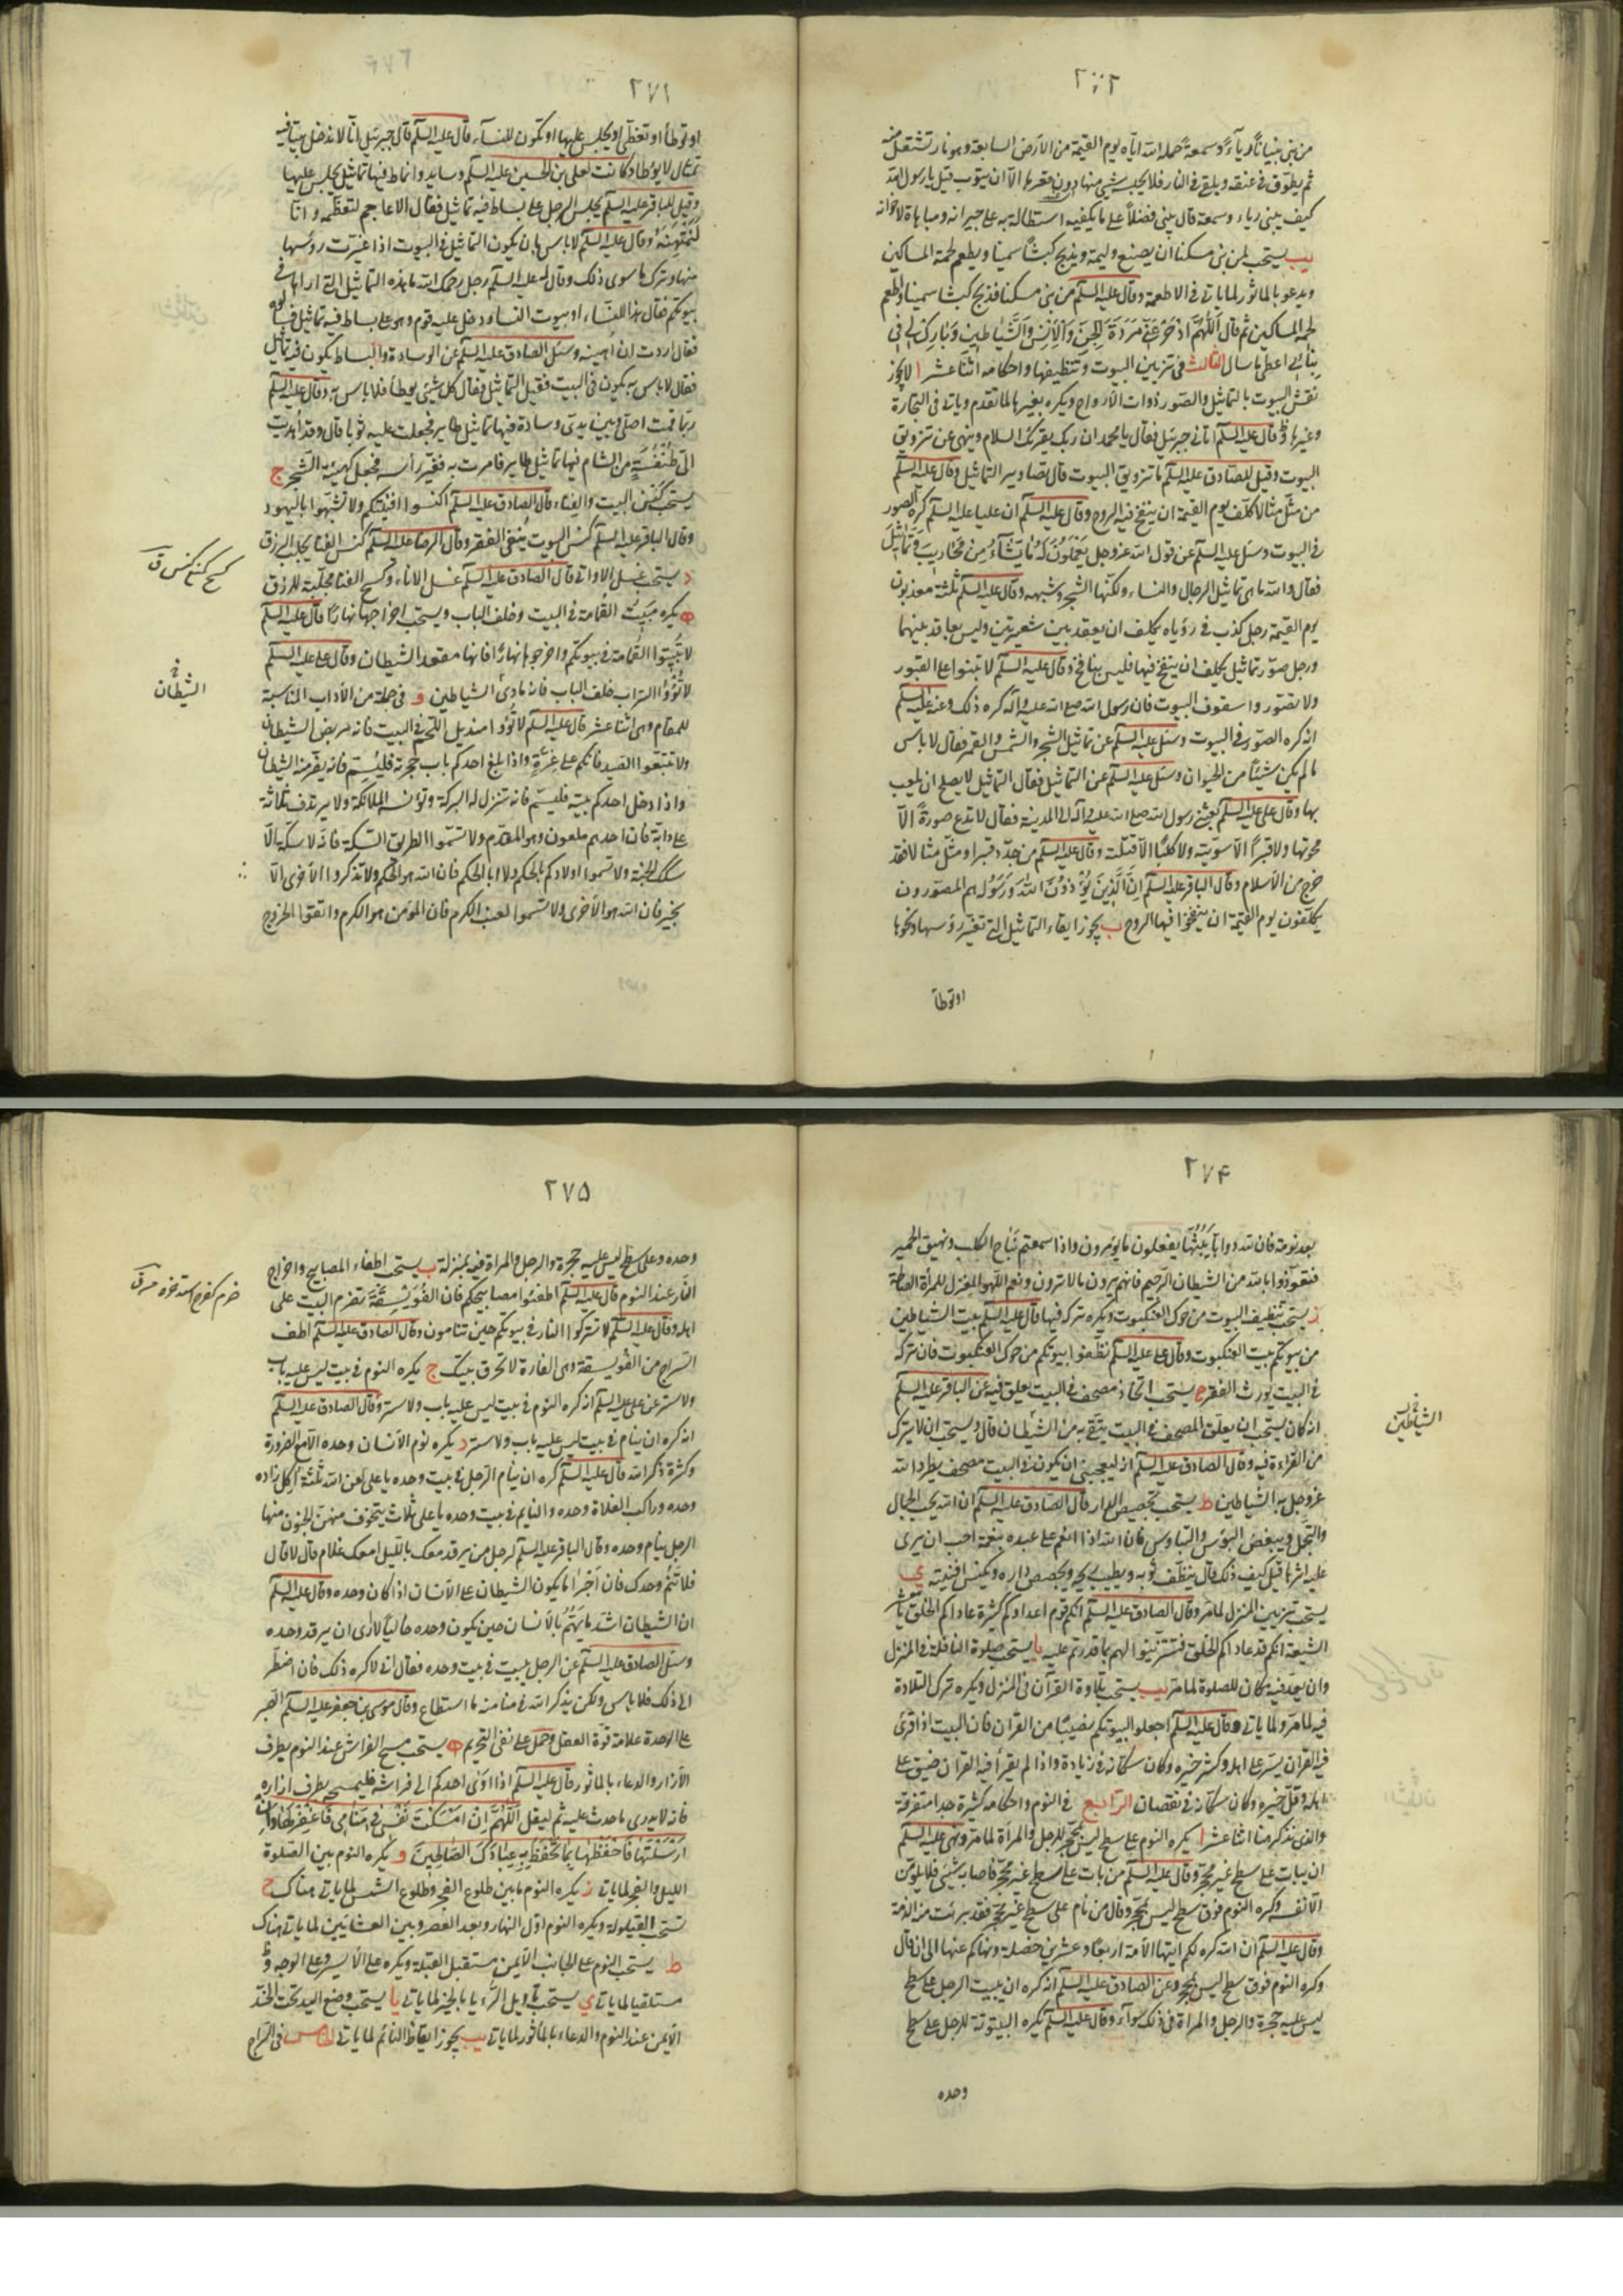 من بنى بنيانًا رياءً وسمعةً حمله الله اياه يوم القيمة من الارض السابعة وهو نار تشتعل منه
ثم يطوق فى عنقه ويلقى فى النار فلا يحبسه شىء منها دون قعرها الا ان يتوب قيل يا رسول الله
كيف يبنى رياء وسمعة قال يبنى فضلاً على ما يكفيه استطالة به على جيرانه ومباهاة لاخوانه
يب يستحب لمن بنى مسكنا ان يصنع وليمة ويذبح كبشًا سمينا ويطعم لحمه المساكين
ويدعو بالماثور لما ياتى فى الاطعمة وقال عليه السلم من بنى مسكنا فذبح كبشا سمينا واطعم
لحمه المساكين ثم قال اَللّٰهُمَّ ادْحَرْ عَنّى مَرَدَةَ الْجِنِّ وَالْاِنْسِ وَالشَّيَاطِينِ وَبَارِكْ لِى فِى
بنائى اعطى ما سال الثالث فى تزيين البيوت وتنظيفها واحكامه اثنا عشر ا لا يجوز
نقش البيوت بالتماثيل والصور ذوات الارواح ويكره بغيرها لما تقدم وياتى فى التجارة
وغيرها وقال عليه السلم اتانى جبرئيل فقال يا محمد ان ربك يقرئك السلام وينهى عن تزويق
البيوت وقيل للصادق عليه السلم ما تزويق البيوت قال تصاوير التماثيل وقال عليه السلم
من مثل مثالا كلف يوم القيمة ان ينفخ فيه الروح وقال عليه السلم ان عليا عليه السلم كره الصور
فى البيوت وسئل عليه السلم عن قول الله عز وجل يَعْمَلُونَ لَهُ مَا يَشَاءُ مِنْ مَحَارِيبَ وَتَمَاثِيلَ
فقال والله ما هى تماثيل الرجال والنساء ولكنها الشجر وشبهه وقال عليه السلم ثلثة معذبون
يوم القيمة رجل كذب فى رؤياه يكلف ان يعقد بين شعيرتين وليس بعاقد بينهما
ورجل صور تماثيل يكلف ان ينفخ فيها فليس بنافخ وقال عليه السلم لا تبنوا على القبور
ولا تصوروا سقوف البيوت فان رسول الله صلى الله عليه وآله كره ذلك وعنه عليه السلم
انه كره الصور فى البيوت وسئل عليه السلم عن تماثيل الشجر والشمس والقمر فقال لا باس
ما لم يكن شيئًا من الحيوان وسئل عليه السلم عن التماثيل فقال التماثيل لا يصلح ان يلعب
بها وقال على عليه السلم بعثنى رسول الله صلى الله عليه وآله الى المدينة فقال لا تدع صورةً الا
محوتها ولا قبرًا الا سويته ولا كلبًا الا قتلته وقال عليه السلم من جدد قبرا او مثل مثالا فقد
خرج من الاسلام وقال الباقر عليه السلم اِنَّ الَّذِينَ يُؤْذُونَ اللّٰهَ وَرَسُولَهُ هم المصورون
يكلفون يوم القيمة ان ينفخوا فيها الروح ب يجوز ابقاء التماثيل التى تغير رؤسها ونحوها
او توطأ
٢٧١
او توطأ او تغطى او يجلس عليها او تكون للنساء قال عليه السلم قال جبرئيل انا لا ندخل بيتا فيه
تمثال لا يوطا وكانت لعلى بن الحسين عليه السلم وسايد وانماط فيها تماثيل يجلس عليها
وقيل للباقر عليه السلم يجلس الرجل على بساط فيه تماثيل فقال الاعاجم لتعظمه وانا
لَنَمْتَهِنُهُ وقال عليه السلم لا باس بان يكون التماثيل فى البيوت اذا غيرت رؤسها
منها وترك ما سوى ذلك وقال له عليه السلم رجل رحمك الله ما هذه التماثيل التى اراها فى
بيوتكم فقال هذا للنساء او بيوت النساء ودخل عليه قوم وهو على بساط فيه تماثيل فسالوه
فقال اردت ان اُهينه وسئل الصادق عليه السلم عن الوسادة والبساط يكون فيه تماثيل
فقال لا باس به يكون فى البيت فقيل التماثيل فقال كل شىء يوطأ فلا باس به وقال عليه السلم
ربما قمت اصلى وبين يدى وسادة فيها تماثيل طاير فجعلت عليه ثوبا قال وقد اُهديت
الى طنفسة من الشام فيها تماثيل طاير فامرت به فغير رأسه فجعل كهيئة الشجر ج
يستحب كنس البيت والفناء قال الصادق عليه السلم اكنسوا افنيتكم ولا تشبهوا باليهود
وقال الباقر عليه السلم كنس البيوت ينفى الفقر وقال الرضا عليه السلم كنس الفنا يجلب الرزق
د يستحب غسل الاوانى قال الصادق عليه السلم غسل الاناء وكسح الفنا مجلبة للرزق
ه يكره مبيت القمامة فى البيت وخلف الباب ويستحب اخراجها نهارًا قال عليه السلم
لا تبيتوا القمامة فى بيوتكم واخرجوها نهارًا فانها مقعد الشيطان وقال على عليه السلم
لا تؤوا التراب خلف الباب فانه مأوى الشياطين و فى جملة من الآداب المناسبة
للمقام وهى اثنا عشر قال عليه السلم لا تؤوا منديل اللحم فى البيت فانه مربض الشيطان
ولا تتبعوا الصيد فانكم على غرة واذا بلغ احدكم باب حجرته فليسم فانه يفر منه الشيطان
واذا دخل احدكم بيته فليسلم فانه تنزل له البركة وتؤنسه الملائكة ولا يرتدف ثلاثة
على دابة فان احدهم ملعون وهو المقدم ولا تسموا الطريق السكة فانه لا سكة الا
سكك الجنة ولا تسموا اولادكم بالحكم ولا ابا الحكم فان الله هو الحكم ولا تذكروا الاخرى الا
بخير فان الله هو الاخرى ولا تسموا العنب الكرم فان المؤمن هو الكرم واتقوا الخروج
كسح كنس ق
الشيطان
٢٧۴
بعد نومة فان لله دوابًا يبثها يفعلون ما يؤمرون واذا سمعتم نباح الكلب ونهيق الحمير
فتعوذوا بالله من الشيطان الرجيم فانهم يرون ما لا ترون ونعم اللهو المغزل للمراة الصالحة
ز يستحب تنظيف البيوت من حوك العنكبوت ويكره تركه فيها قال عليه السلم بيت الشياطين
من بيوتكم بيت العنكبوت وقال على عليه السلم نظفوا بيوتكم من حوك العنكبوت فان تركه
فى البيت يورث الفقر ح يستحب اتخاذ مصحف فى البيت يعلق فيه عن الباقر عليه السلم
انه كان يستحب ان يعلق المصحف فى البيت يتقى به من الشيطان قال ويستحب ان لا يترك
من القراءة فيه وقال الصادق عليه السلم انه ليعجبنى ان يكون فى البيت مصحف يطرد الله
عز وجل به الشياطين ط يستحب تجصيص الدار قال الصادق عليه السلم ان الله يحب الجمال
والتجمل ويبغض البؤس والتباوس فان الله اذا انعم على عبده بنعمة احب ان يرى
عليه اثرها قيل كيف ذلك قال ينظف ثوبه ويطيب ريحه ويجصص داره ويكنس افنيته ى
يستحب تزيين المنزل لما مر وقال الصادق عليه السلم انكم قوم اعداؤكم كثيرة عاداكم الخلق يا معشر
الشيعة انكم قد عاداكم الخلق فتزينوا لهم بما قدرتم عليه يا يستحب صلوة النافلة فى المنزل
وان يعد فيه مكان للصلوة لما مر يب يستحب تلاوة القرآن فى المنزل ويكره ترك التلاوة
فيه لما مر ولما ياتى وقال عليه السلم اجعلوا لبيوتكم نصيبًا من القرآن فان البيت اذا قرئ
فيه القرآن يسر على اهله وكثر خيره وكان سكانه فى زيادة واذا لم يقرأ فيه القرآن ضيق على
اهله وقل خيره وكان سكانه فى نقصان الرابع فى النوم واحكامه كثيرة جدا متفرقة
والذى نذكر هنا اثنا عشر ا يكره النوم على سطح ليس بمحجر للرجل والمرأة لما مر ونهى عليه السلم
ان يبات على سطح غير محجر وقال عليه السلم من بات على سطح غير محجر فاصابه شىء فلا يلومن
الا نفسه وكره النوم فوق سطح ليس بمحجر وقال من نام على سطح غير محجر فقد برئت منه الذمة
وقال عليه السلم ان الله كره لكم ايتها الامة اربعًا وعشرين خصلة ونهاكم عنها الى ان قال
وكره النوم فوق سطح ليس بمحجر وعن الصادق عليه السلم انه كره ان يبيت الرجل على سطح
ليس عليه حجرة والرجل والمراة فى ذلك سواء وقال عليه السلم يكره البيتوتة للرجل على سطح
وحده
الشياطين
٢٧۵
وحده وعلى سطح ليس عليه حجرة والرجل والمراة فيه بمنزلة ب يستحب اطفاء المصابيح واخراج
النار عند النوم قال عليه السلم اطفئوا مصابيحكم فان الفُوَيْسِقَة تضرم البيت على
اهله وقال عليه السلم لا تتركوا النار فى بيوتكم حين تنامون وقال الصادق عليه السلم اطف
السراج من الفويسقة وهى الفارة لا تحرق بيتك ج يكره النوم فى بيت ليس عليه باب
ولا ستر عن على عليه السلم انه كره النوم فى بيت ليس عليه باب ولا ستر وقال الصادق عليه السلم
انه كره ان ينام فى بيت ليس عليه باب ولا ستر د يكره نوم الانسان وحده الا مع الضرورة
وكثرة ذكر الله قال عليه السلم كره ان ينام الرجل فى بيت وحده يا على لعن الله ثلثة آكل زاده
وحده وراكب الفلاة وحده والنايم فى بيت وحده يا على ثلاث يتخوف منهن الجنون منها
الرجل ينام وحده وقال الباقر عليه السلم لرجل من يرقد معك بالليل امعك غلام قال لا قال
فلا تنم وحدك فان اجرأ ما يكون الشيطان على الانسان اذا كان وحده وقال عليه السلم
ان الشيطان اشد ما يهم بالانسان حين يكون وحده خاليًا لا ارى ان يرقد وحده
وسئل الصادق عليه السلم عن الرجل يبيت فى بيت وحده فقال انى لاكره ذلك فان اضطر
الى ذلك فلا باس ولكن يذكر الله فى منامه ما استطاع وقال موسى بن جعفر عليه السلم الصبر
على الوحدة علامة قوة العقل وحمل على نفى التحريم ه يستحب مسح الفراش عند النوم بطرف
الازار والدعاء بالماثور قال عليه السلم اذا اوى احدكم الى فراشه فليمسحه بطرف ازاره
فانه لا يدرى ما حدث عليه ثم ليقل اَللّٰهُمَّ اِنْ اَمْسَكْتَ نَفْسِى فِى مَنَامِى فَاغْفِرْ لَهَا وَاِنْ
اَرْسَلْتَهَا فَاحْفَظْهَا بِمَا تَحْفَظُ بِهِ عِبَادَكَ الصَّالِحِينَ و يكره النوم بين الصلوة
الليل والفجر لما ياتى ز يكره النوم ما بين طلوع الفجر وطلوع الشمس لما ياتى هناك ح
تستحب القيلولة ويكره النوم اول النهار وبعد العصر وبين العشائين لما ياتى هناك
ط يستحب النوم على الجانب الايمن مستقبل القبلة ويكره على الايسر وعلى الوجه و
مستلقيا لما ياتى ى يستحب تاويل الرؤيا بالخير لما ياتى يا يستحب وضع اليد تحت الخد
الايمن عند النوم والدعاء بالمأثور لما ياتى يب يجوز ايقاظ النائم لما ياتى الخامس فى السراج